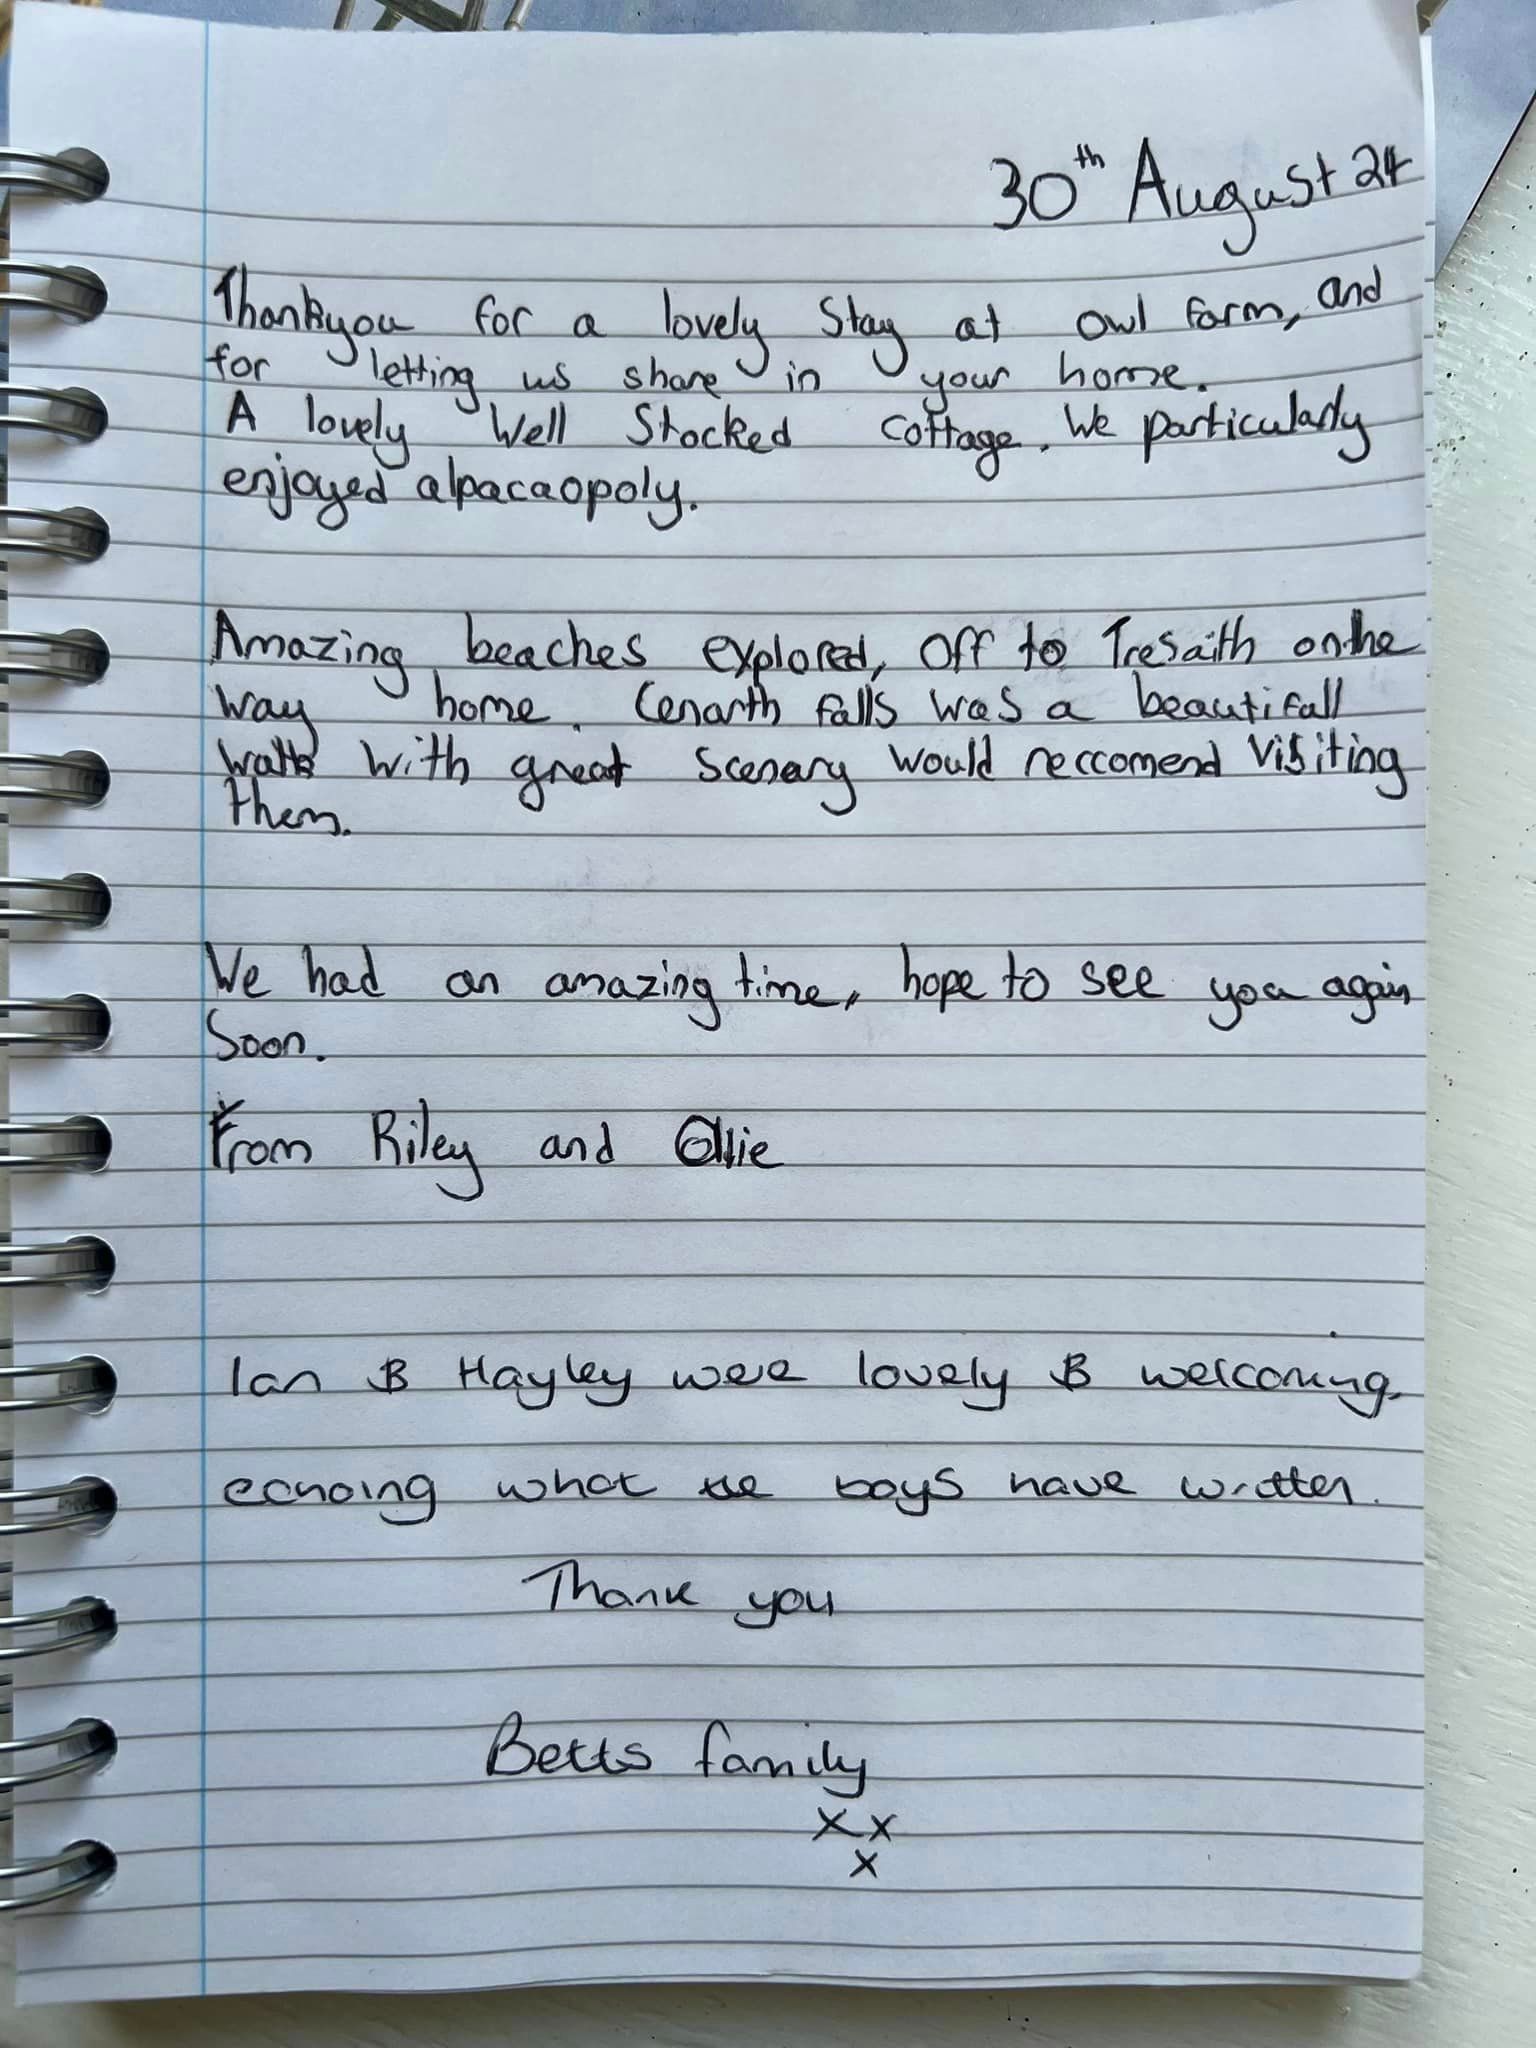 30th August 24
Thankyou for a lovely Stay at owl farm, and
for letting us share in your home.
A lovely Well Stocked Cottage. We particularly
enjoyed alpacaopoly.
Amazing beaches explored, off to Tresaith on the
way home. Cenarth falls was a beautifull
walk with great Scenary would reccomend Visiting
them.
We had an amazing time, hope to see you again
Soon.
From Riley and Ollie
Ian & Hayley were lovely & welcoming,
echoing what the boys have written.
Thank you
Betts family
x x
x